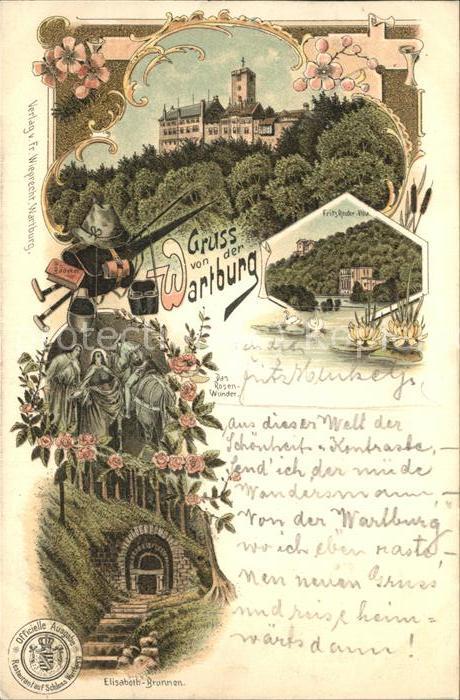 Verlag v. Fr. Wieprecht, Wartburg.
Gruss
von der
Wartburg
Fritz Reuter-Villa.
Bädeker
Das
Rosen-
Wunder.
aus dieser Welt der
Schönheit u. Kontraste, –
send' ich, der müde
Wandersmann, –
Von der Wartburg
wo ich eben raste
'nen neuen Gruss
und reise heim-
wärts dann!
Elisabeth-Brunnen.
Officielle Ausgabe
Restaurant auf Schloss Wartburg